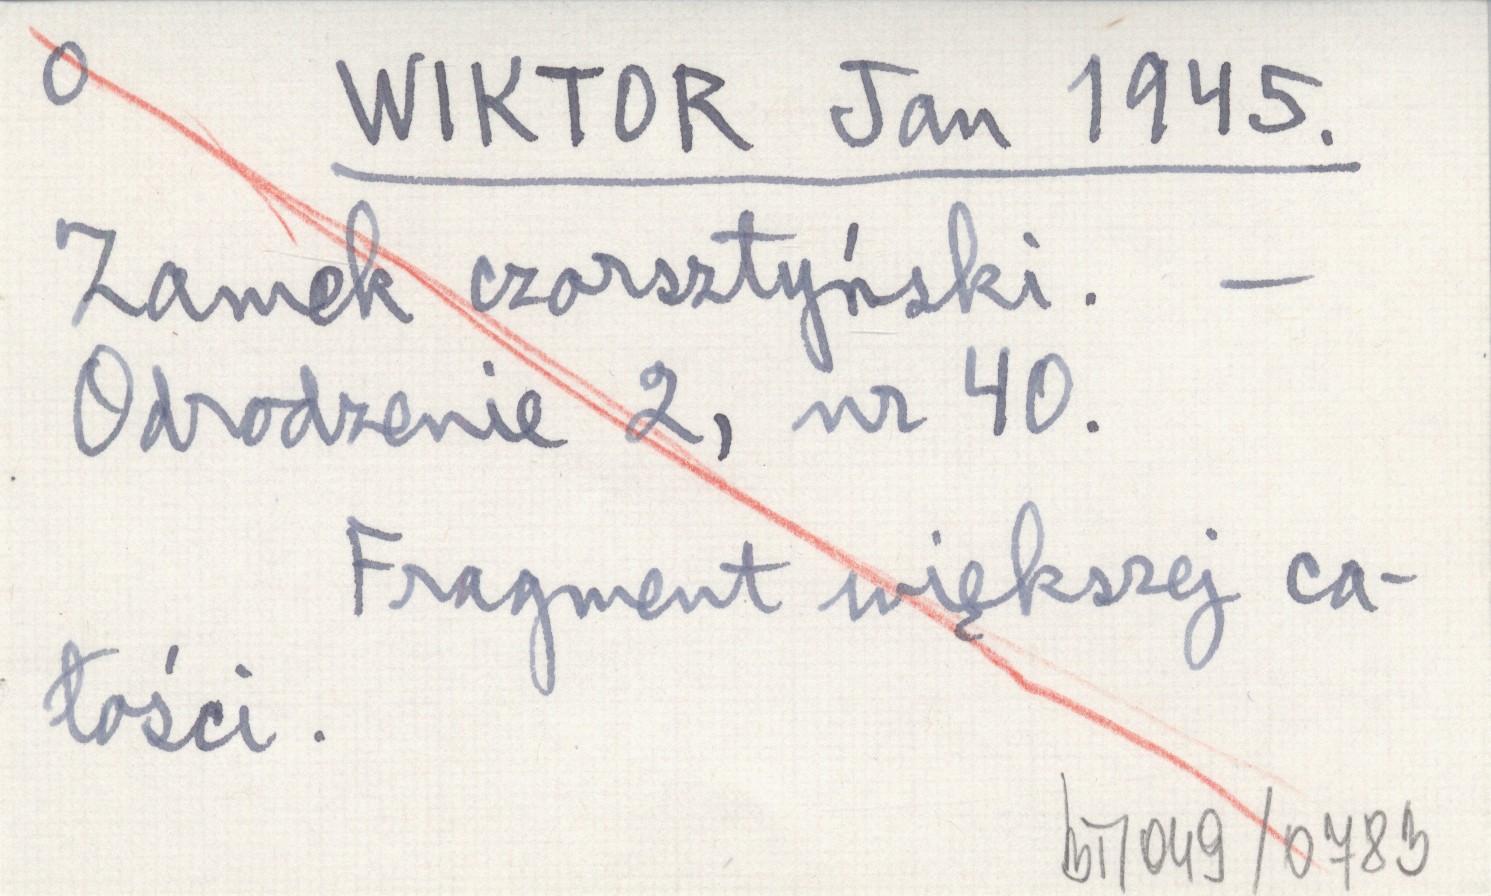 O WIKTOR Jan 1945.
Zamek czorsztyński. —
Odrodzenie 2, nr 40.
Fragment większej ca-
łości.
bT/049/0783